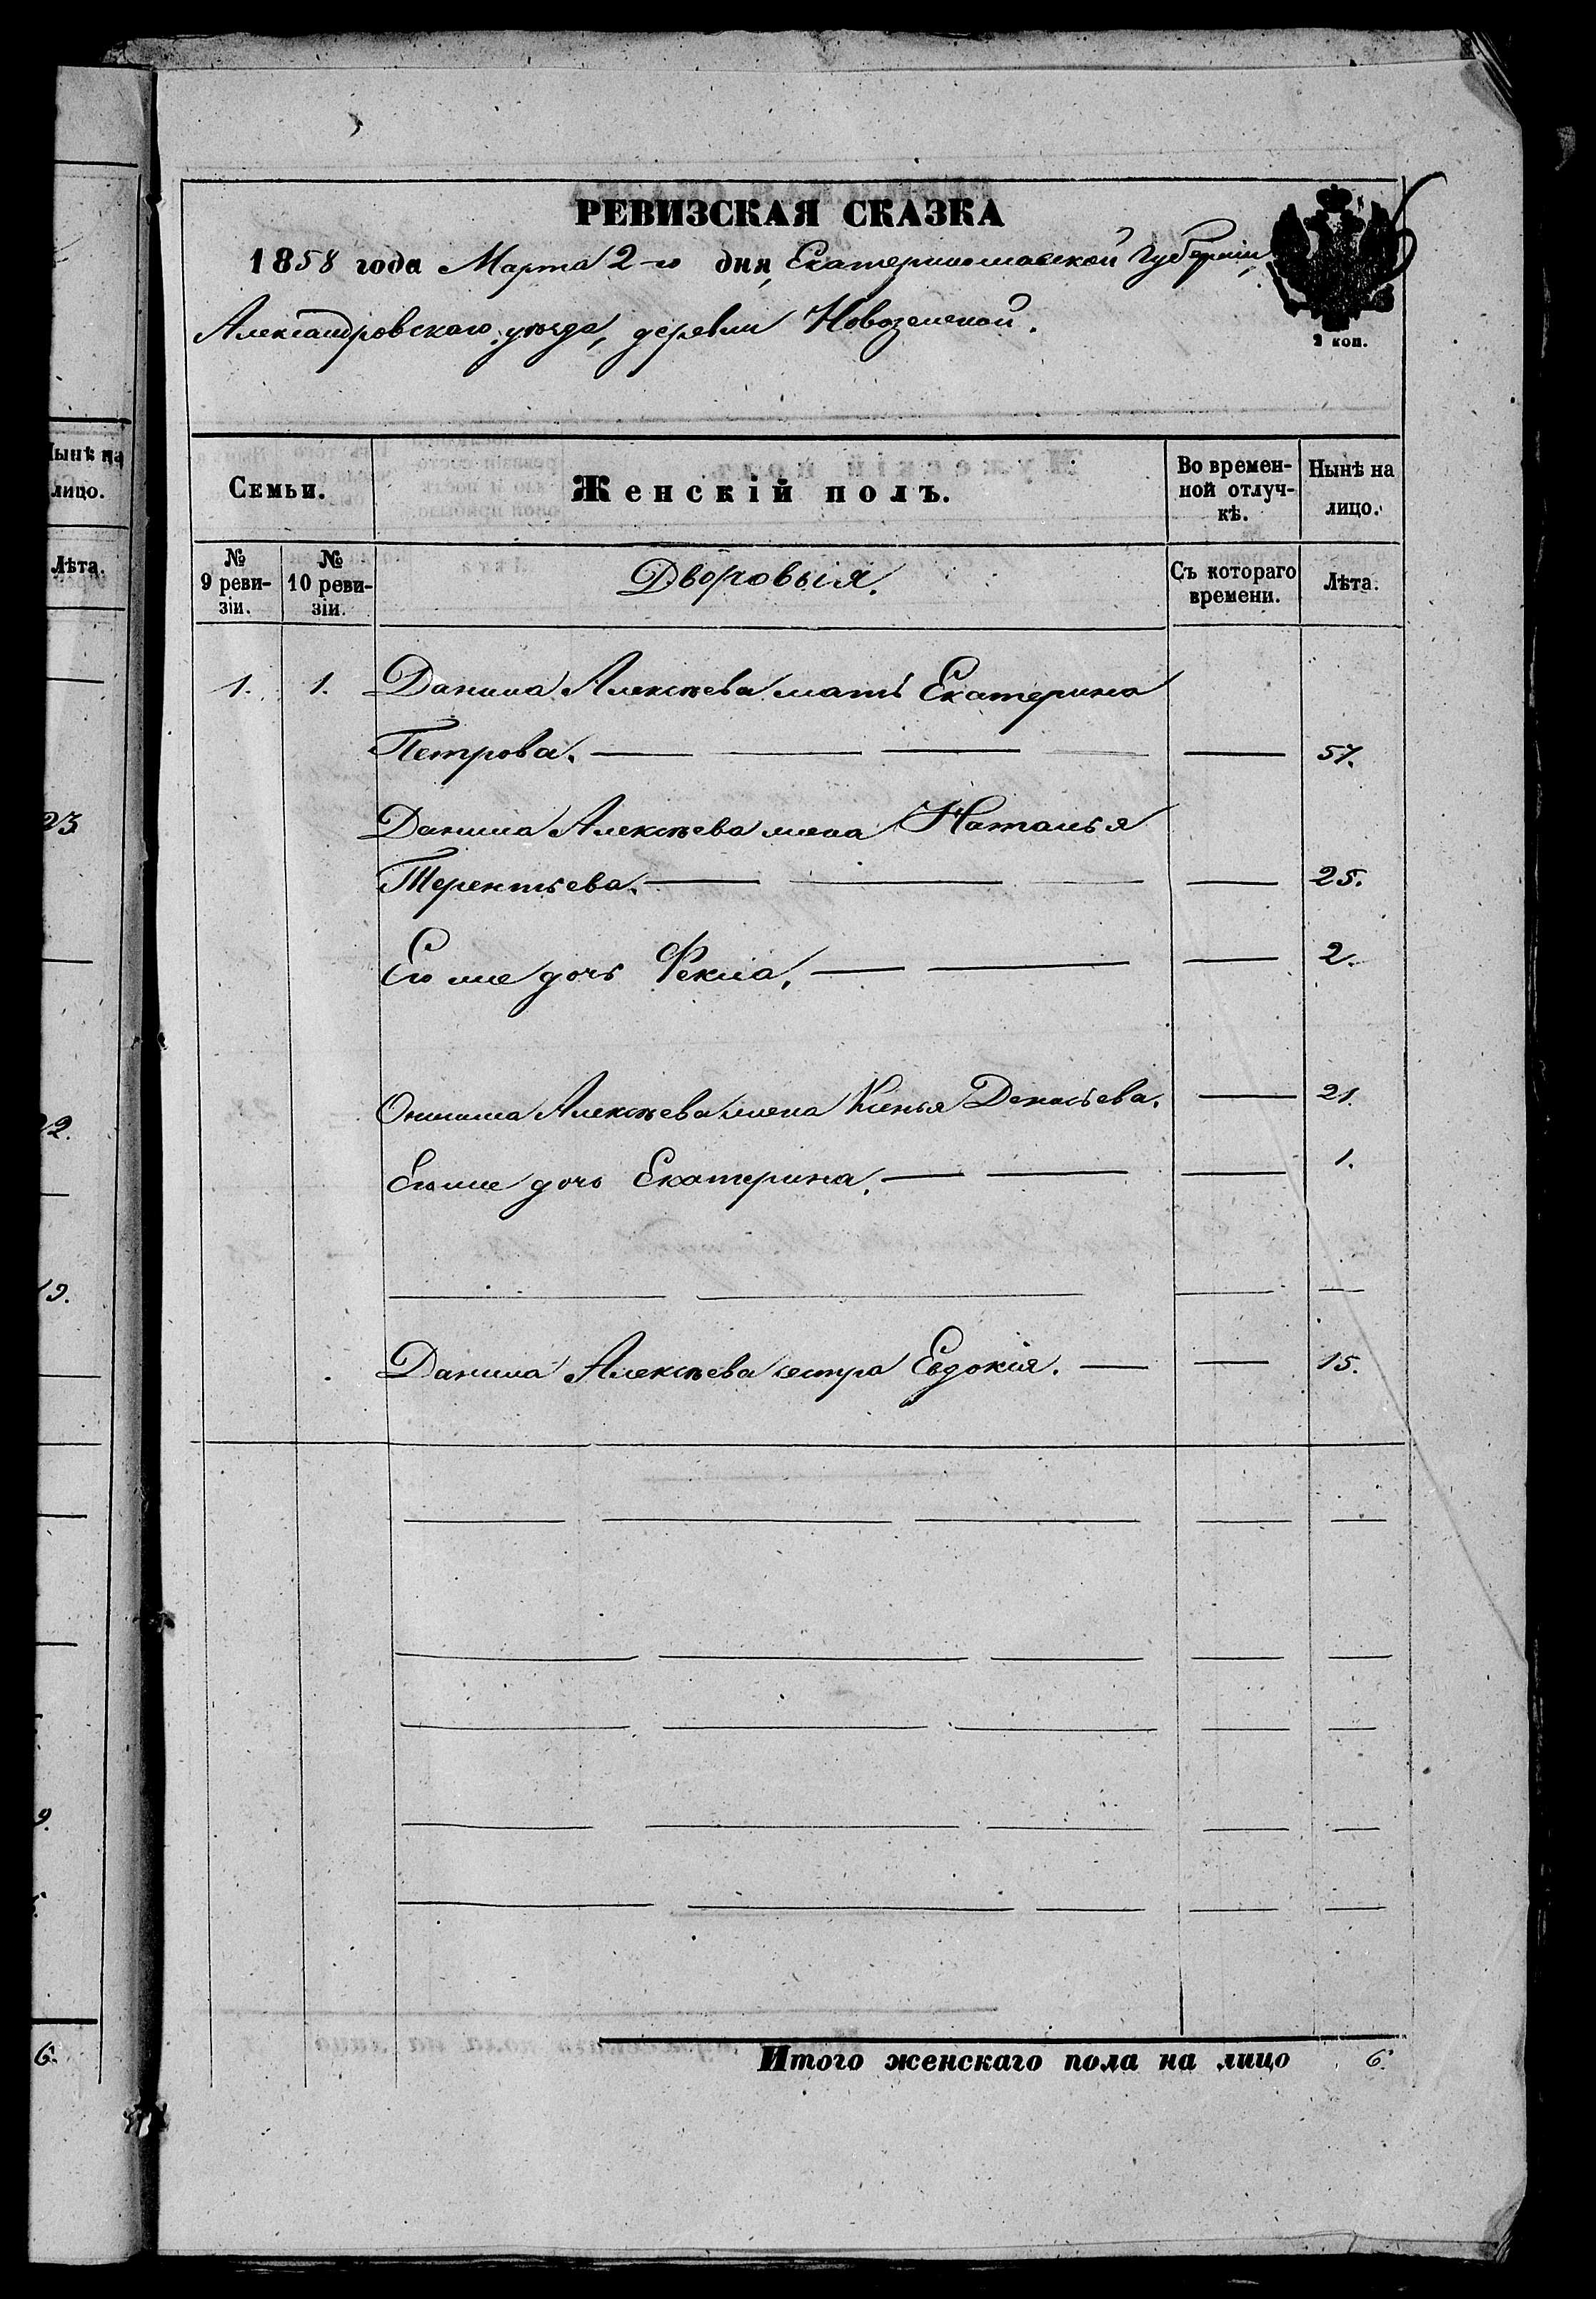 РЕВИЗСКАЯ СКАЗКА
1858 года Марта 2-го дня, Екатеринославской Губерніи,
Александровскаго уѣзда, деревни
2 коп.
Семьи. Женскій полъ. Во времен-ной отлуч-кѣ. Нынѣ на лицо.
№ 9 реви-зіи. № 10 реви-зіи. Дворовыія. Съ котораго времени. Лѣта.
1. 1. Данила Алексѣева мать Екатерина
Петрова. 57.
Данила Алексѣева жена Наталья
Терентьева. 25.
Его же дочь Фекла, 2.
Алексѣева жена 21.
Его же дочь Екатерина. 1.
Данила Алексѣева сестра Евдокія. 15.
Итого женскаго пола на лицо 6.
Нынѣ на
лицо.
Лѣта.
23
22.
19.
9.
6.